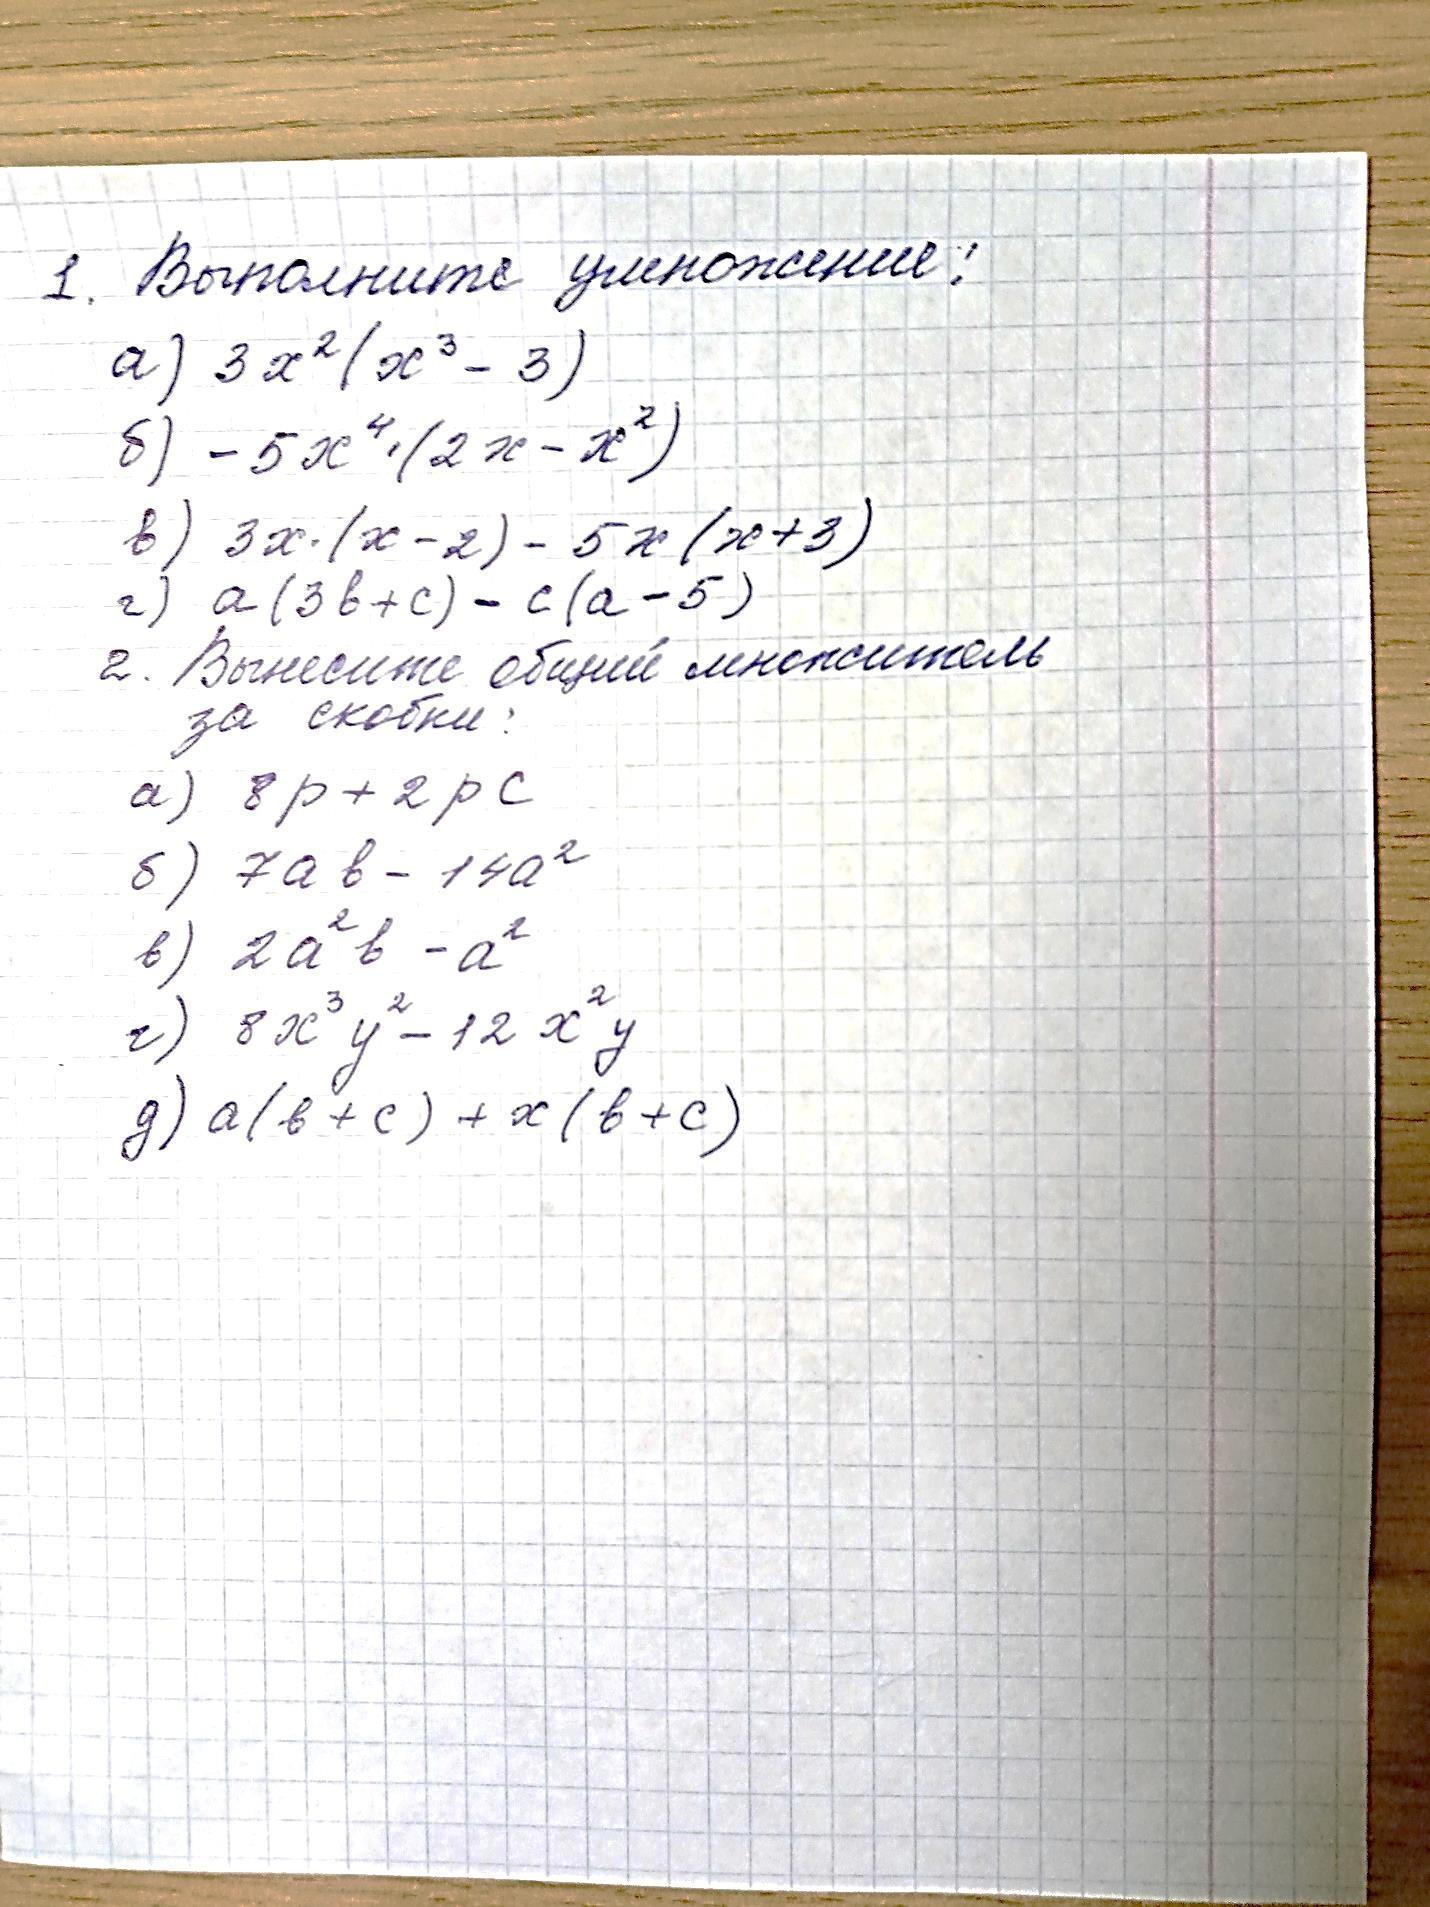 1. Выполните умножение:
а) 3x²(x³ - 3)
б) -5x⁴·(2x - x²)
в) 3x·(x - 2) - 5x(x + 3)
г) a(3b + c) - c(a - 5)
2. Вынесите общий множитель
за скобки:
а) 8p + 2pc
б) 7ab - 14a²
в) 2a²b - a²
г) 8x³y² - 12x²y
д) a(b + c) + x(b + c)